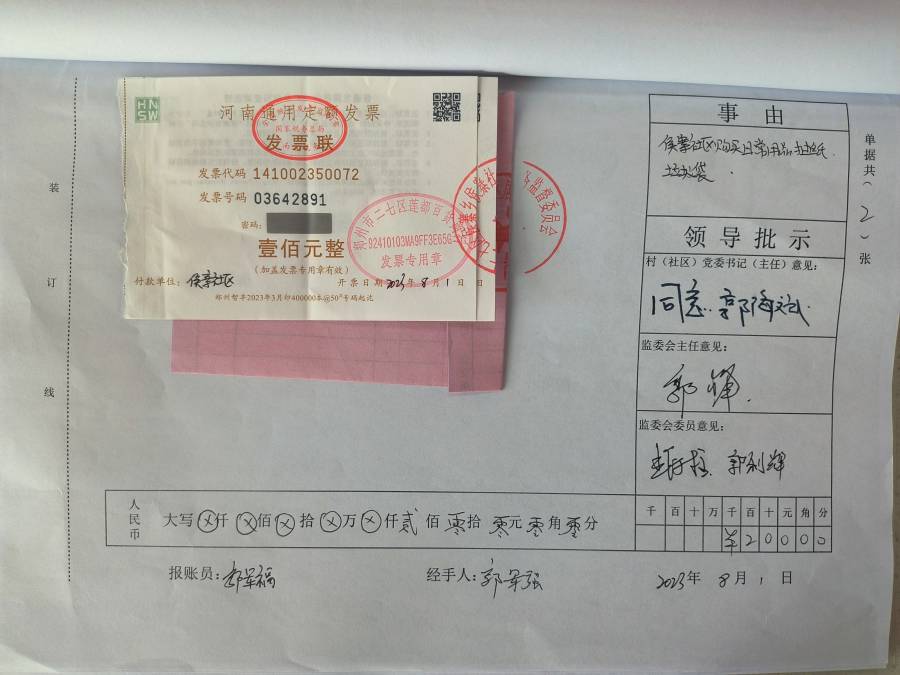 HN
SW
河南通用定额发票
国家税务总局
发票联
发票代码 141002350072
发票号码 03642891
密码:
壹佰元整
(加盖发票专用章有效)
付款单位: 侯寨社区
开票日期 2023年 8 月 1 日
郑州市二七区莲都百
92410103MA9FF3E65G
发票专用章
监督委员会
装
订
线
事由
侯寨社区购买日常用品
垃圾袋
单据共(2)张
领导批示
村(社区)党委书记(主任)意见:
同意
监委会主任意见:
监委会委员意见:
郭利辉
人民币
大写 ⊗仟 ⊗佰 ⊗拾 ⊗万 ⊗仟 贰佰 零拾 零元 零角 零分
千 百 十 万 千 百 十 元 角 分
¥ 2 0 0 0 0
报账员:
经手人: 郭军强
2023年 8 月 1 日